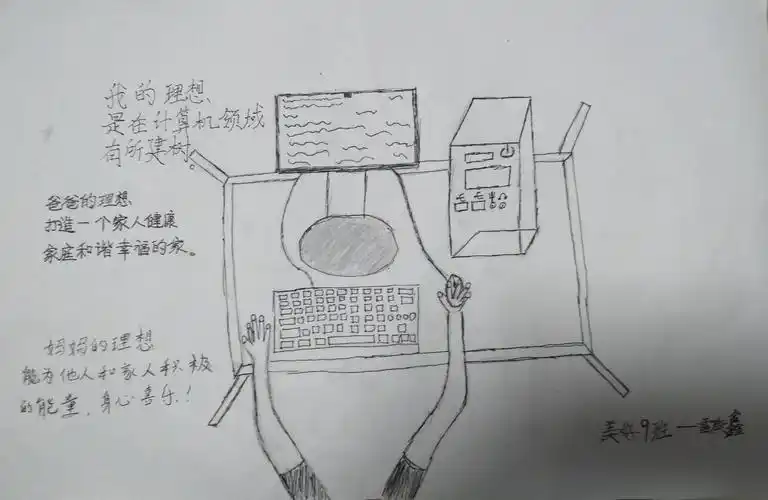 我的理想、
是在计算机领域
有所建树。
爸爸的理想
打造一个家人健康
家庭和谐幸福的家。
妈妈的理想
能为他人和家人积极
的能量，身心喜乐！
美好9班